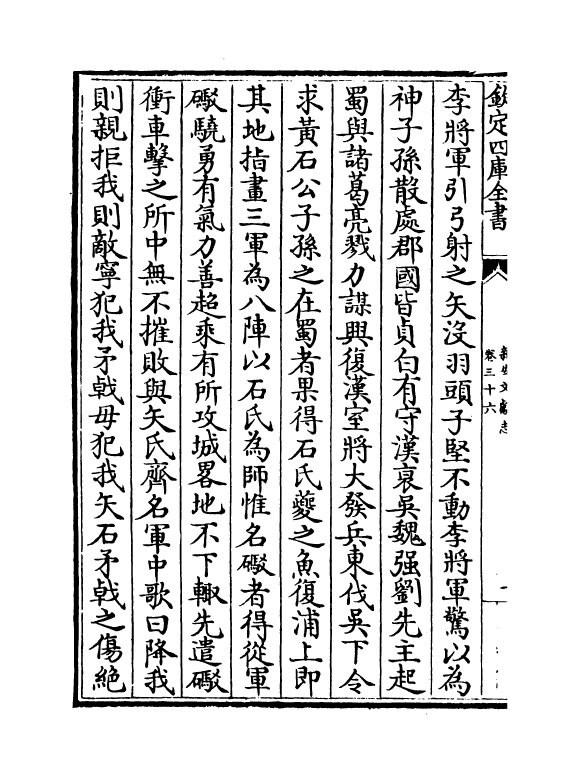 欽定四庫全書
卷三十六
李將軍引弓射之矢沒羽頭子堅不動李將軍驚以為
神子孫散處郡國皆貞白有守漢哀吳魏强劉先主起
蜀與諸葛亮戮力謀興復漢室將大發兵東伐吳下令
求黃石公子孫之在蜀者果得石氏夔之魚復浦上即
其地指畫三軍為八陣以石氏為師惟名礮者得從軍
礮驍勇有氣力善超乘有所攻城畧地不下輙先遣礮
衝車擊之所中無不摧敗與矢氏齊名軍中歌曰降我
則親拒我則敵寧犯我矛戟毋犯我矢石矛戟之傷絶